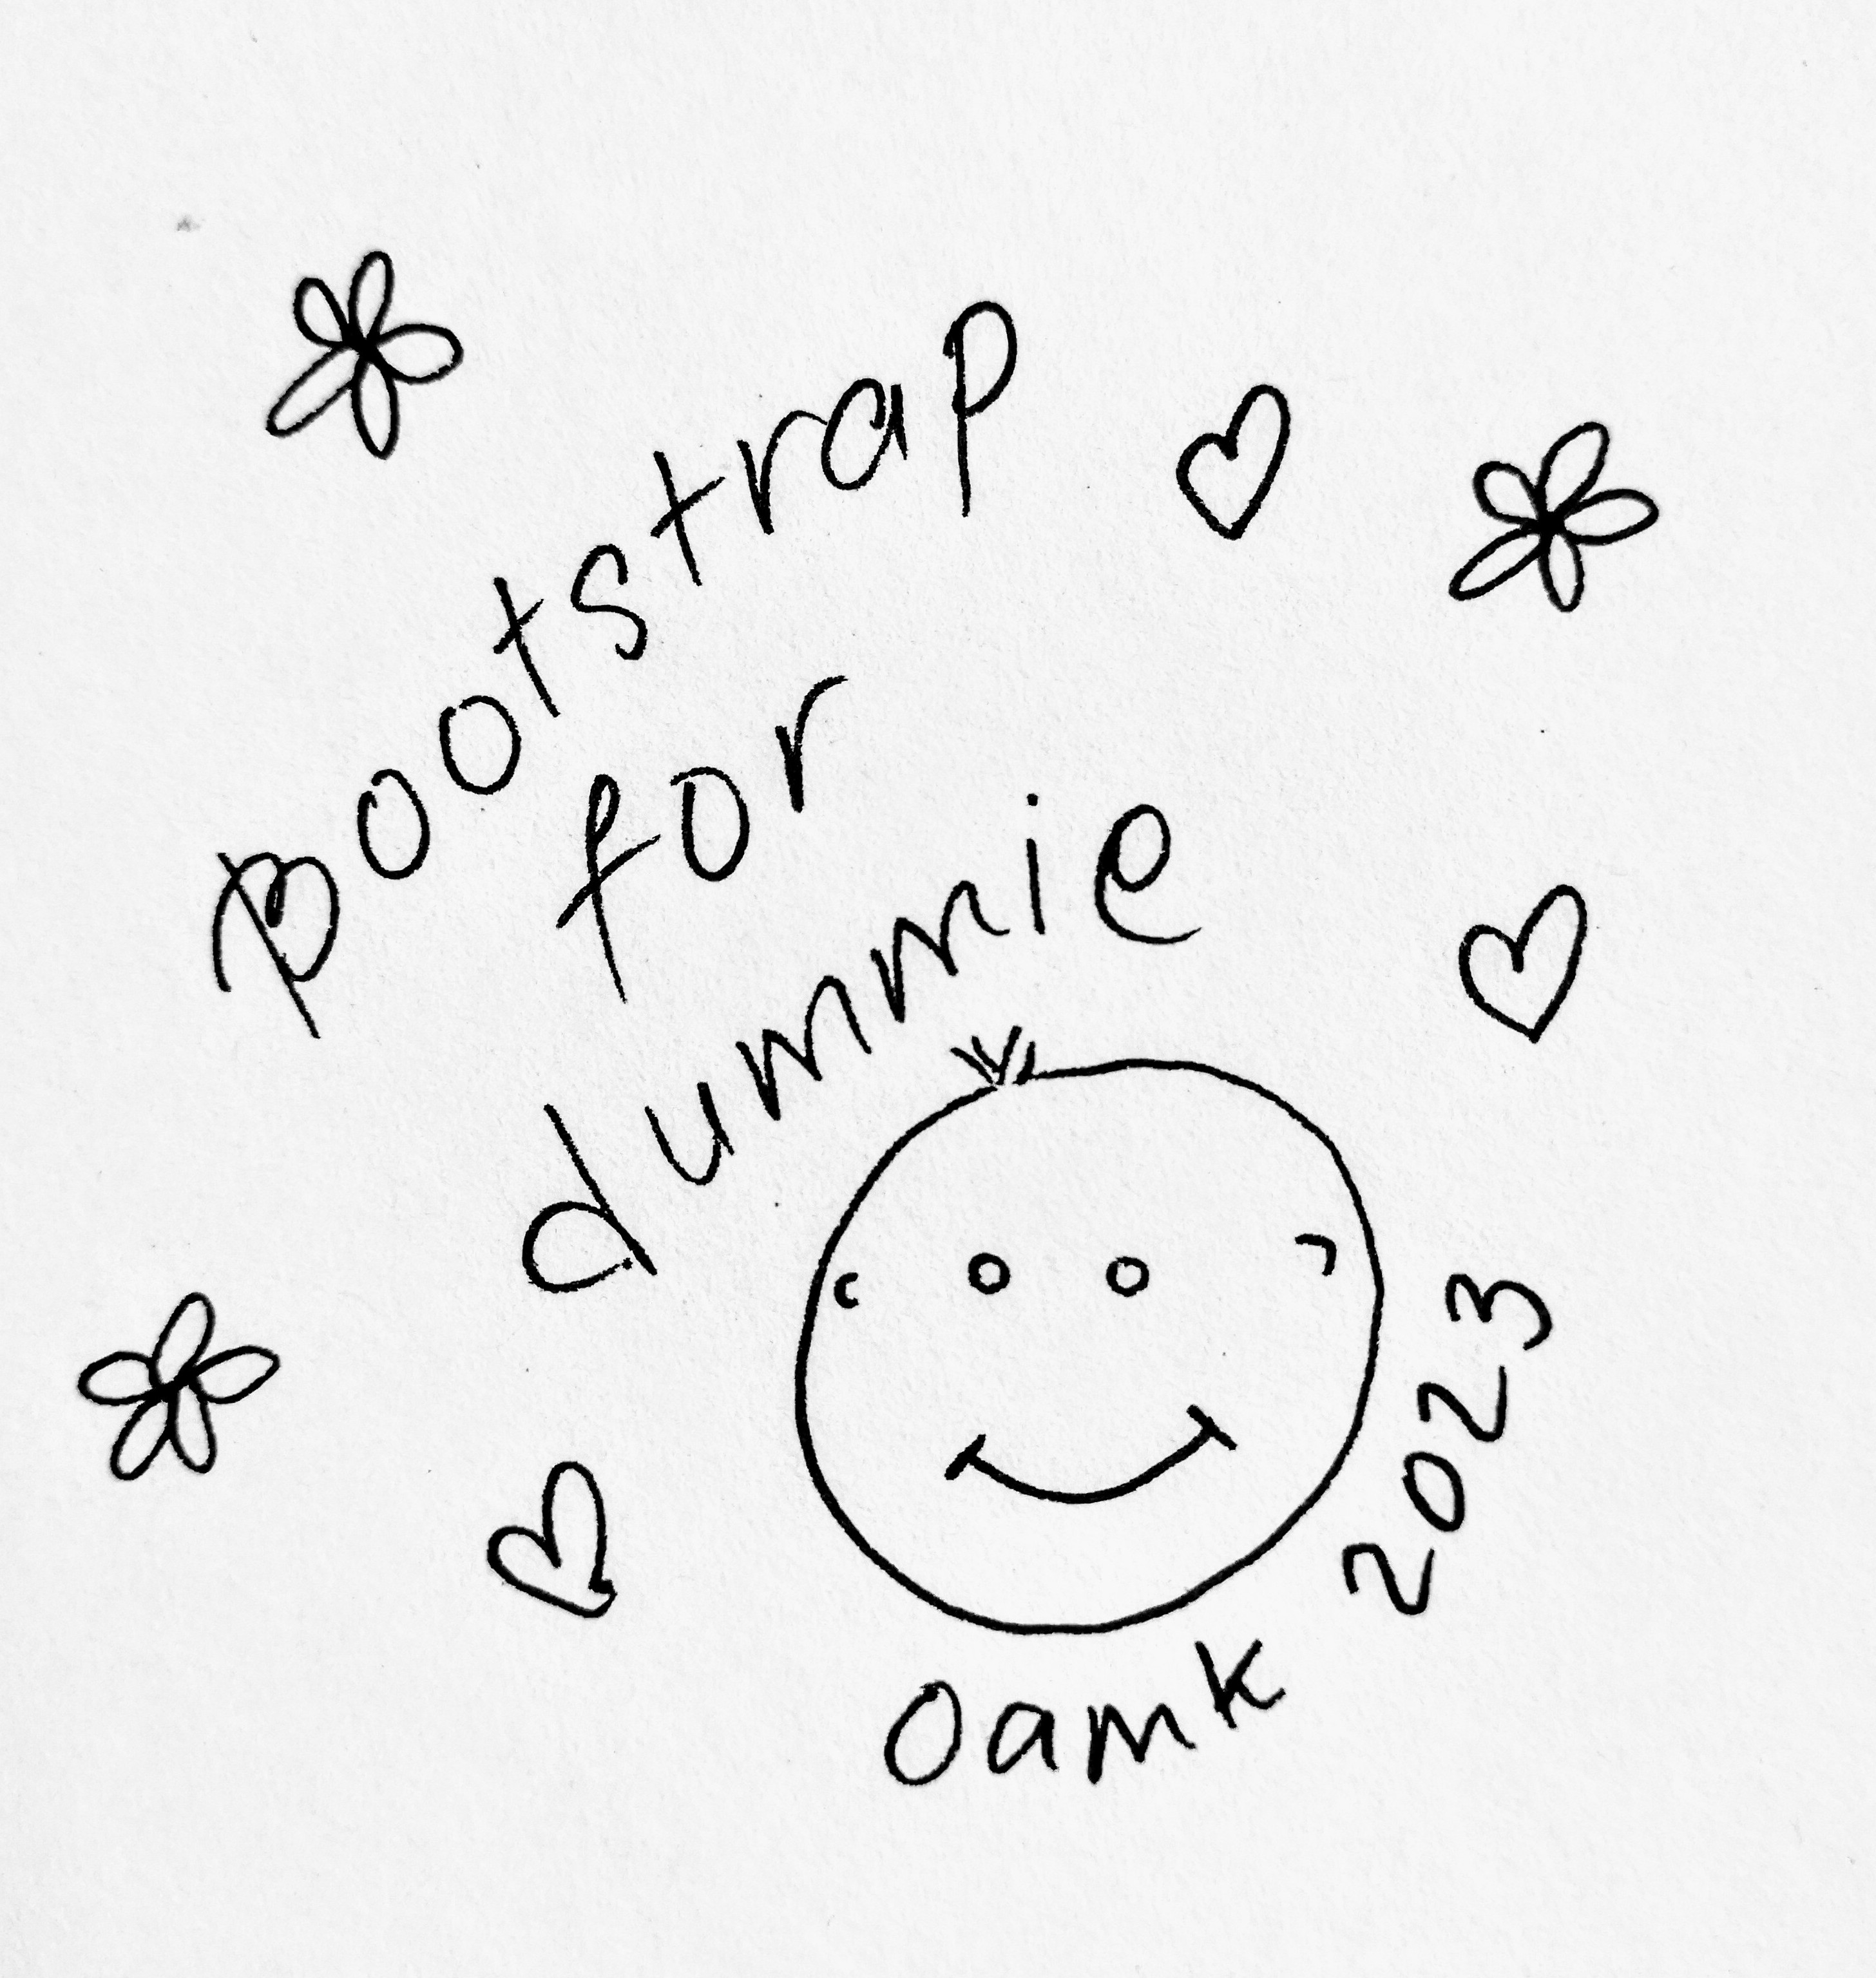 Bootstrap
for
dummie
Oamk 2023